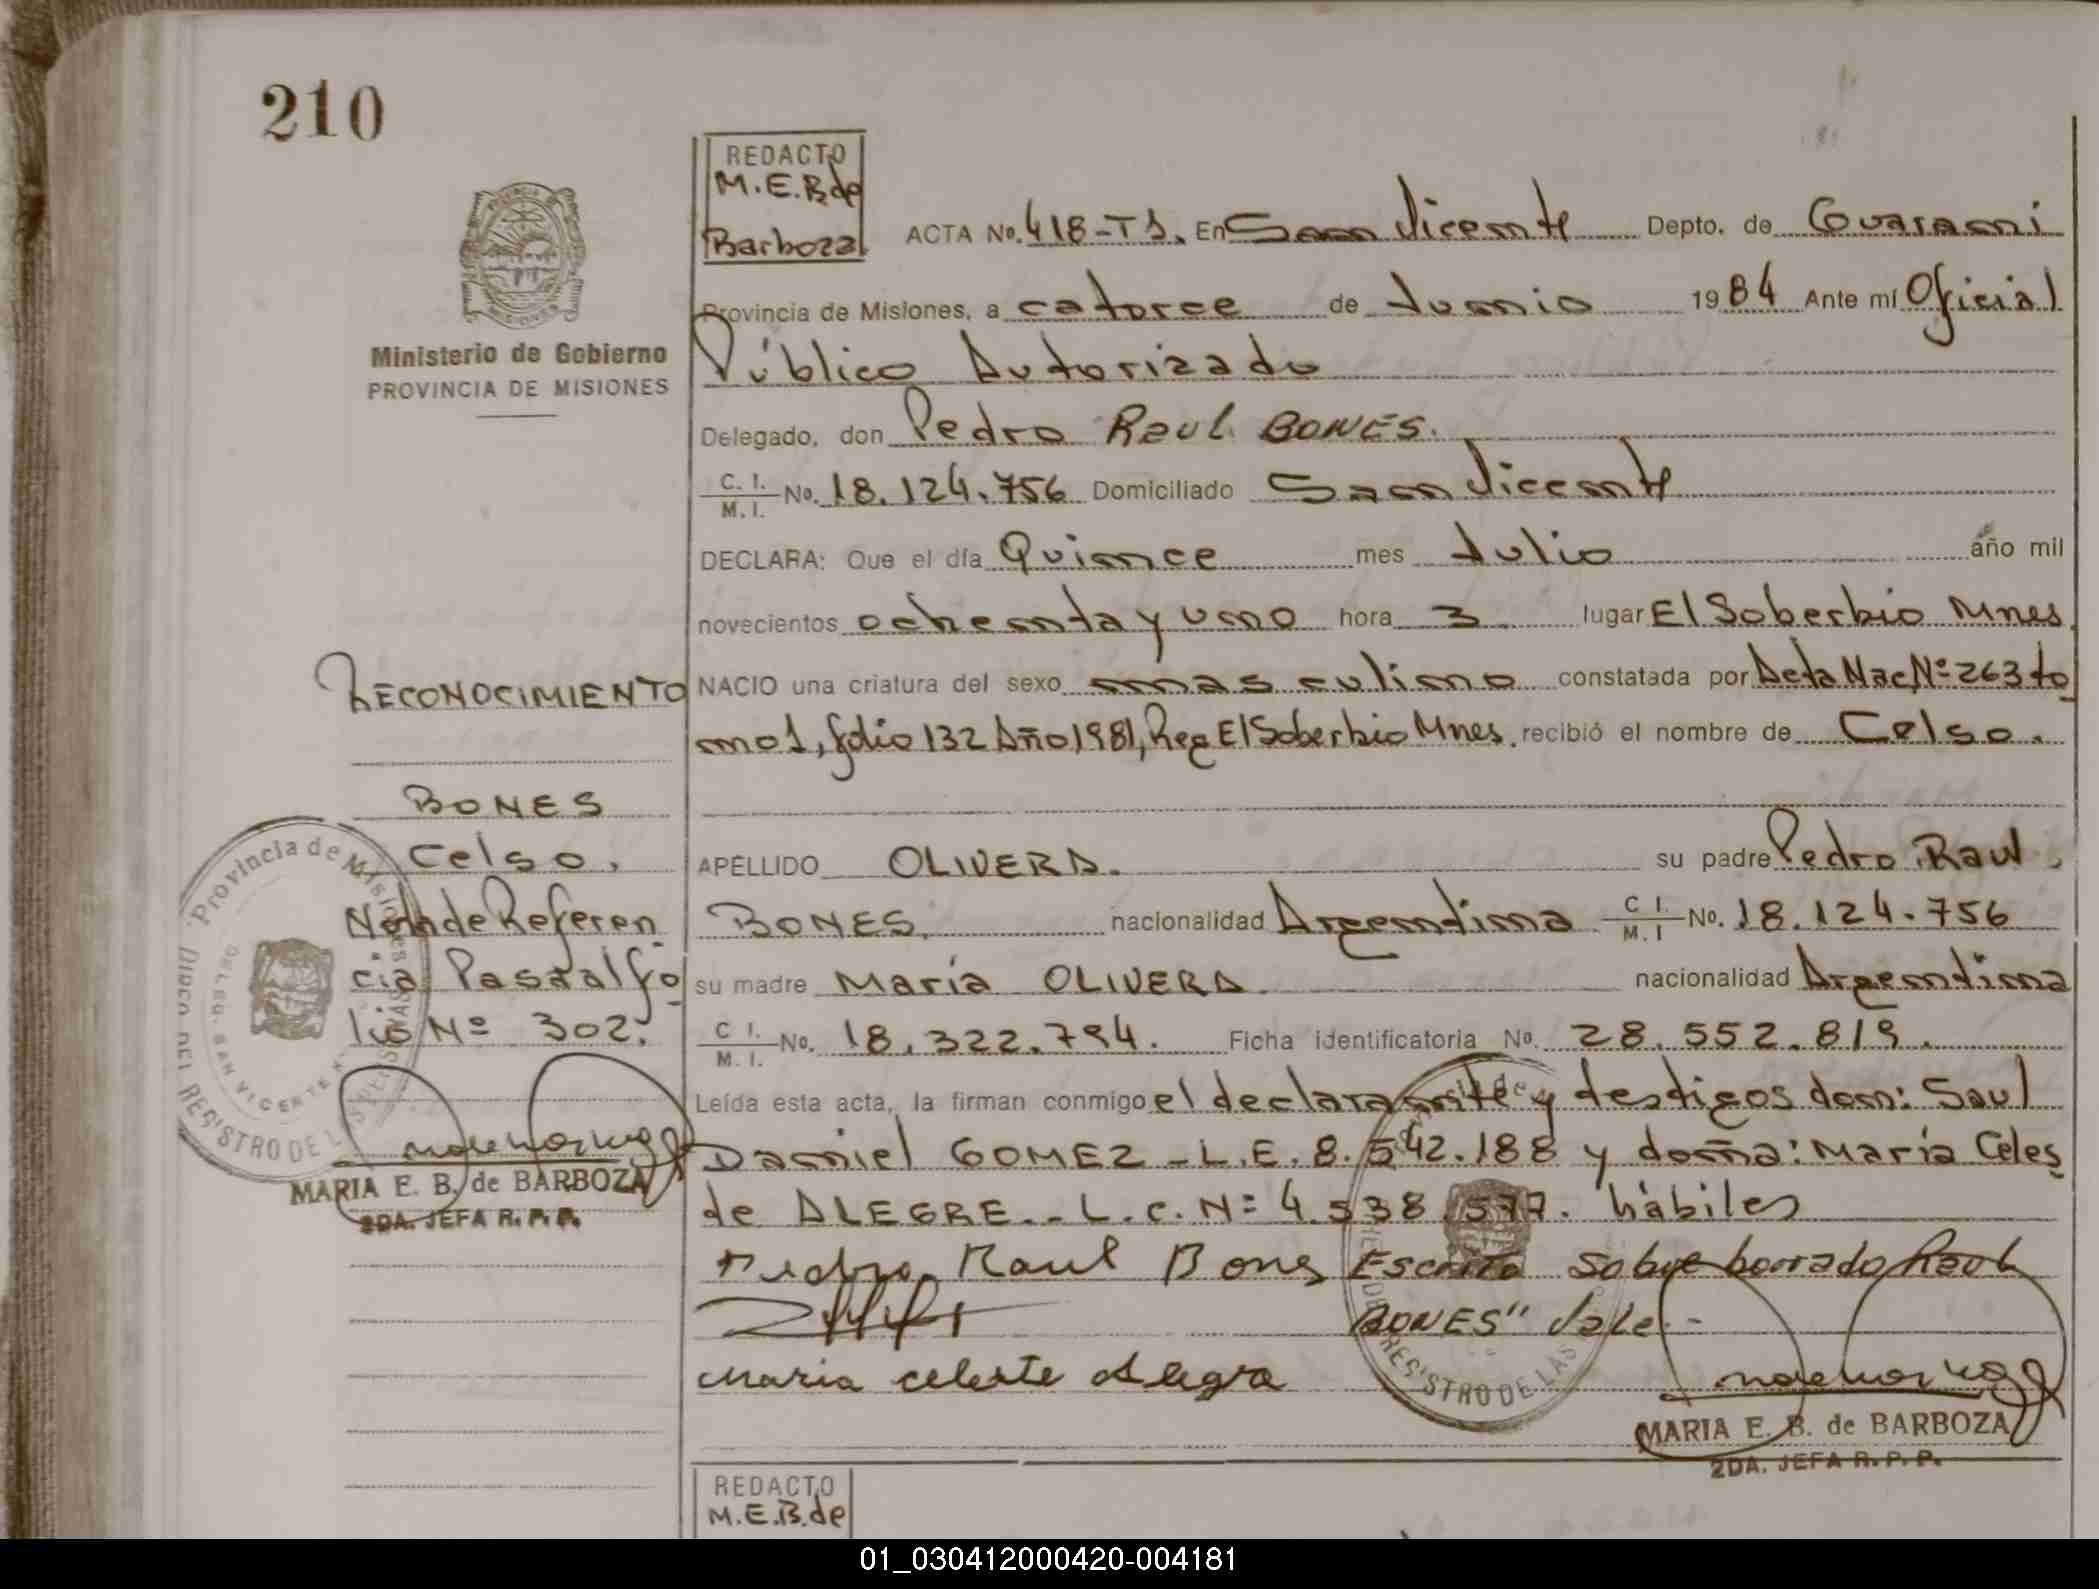 210
REDACTO
M.E.B.de
Barboza
ACTA No. 418-T1. En San Vicente Depto. de Guarani
Provincia de Misiones, a catorce de Junio 1984 Ante mí Oficial
Público Autorizado
Ministerio de Gobierno
PROVINCIA DE MISIONES
Delegado, don Pedro Raul BONES.
C. I. / M. I. No. 18.124.756 Domiciliado San Vicente
DECLARA: Que el día Quince mes Julio año mil
novecientos ochenta y uno hora 3 lugar El Soberbio Mnes.
NACIO una criatura del sexo masculino constatada por Acta Nac. Nº 263 to
mo 1, folio 132 Año 1981, Reg El Soberbio Mnes. recibió el nombre de Celso.
APELLIDO OLIVERA. su padre Pedro Raul
BONES. nacionalidad Argentina C I. / M. I No. 18.124.756
su madre María OLIVERA nacionalidad Argentina
C I. / M. I. No. 18.322.794. Ficha identificatoria No. 28.552.819.
Leída esta acta, la firman conmigo el declarante y testigos don: Saul
Daniel GOMEZ - L.E. 8.542.188 y doña: María Celes
te ALEGRE.- L.C. Nº 4.538.577. hábiles
Pedro Raul Bones Escrito Sobre borrado Raul
BONES" Vale.-
Maria celeste Alegre
MARIA E. B. de BARBOZA
2DA. JEFA R. P. P.
RECONOCIMIENTO
BONES
Celso.
Nota de Referen
cia Pasa al fo
lio Nº 302.
Provincia de Misiones
DELEG. SAN VICENTE
MARIA E. B. de BARBOZA
2DA. JEFA R. P. P.
REDACTO
M.E.B.de
01_030412000420-004181